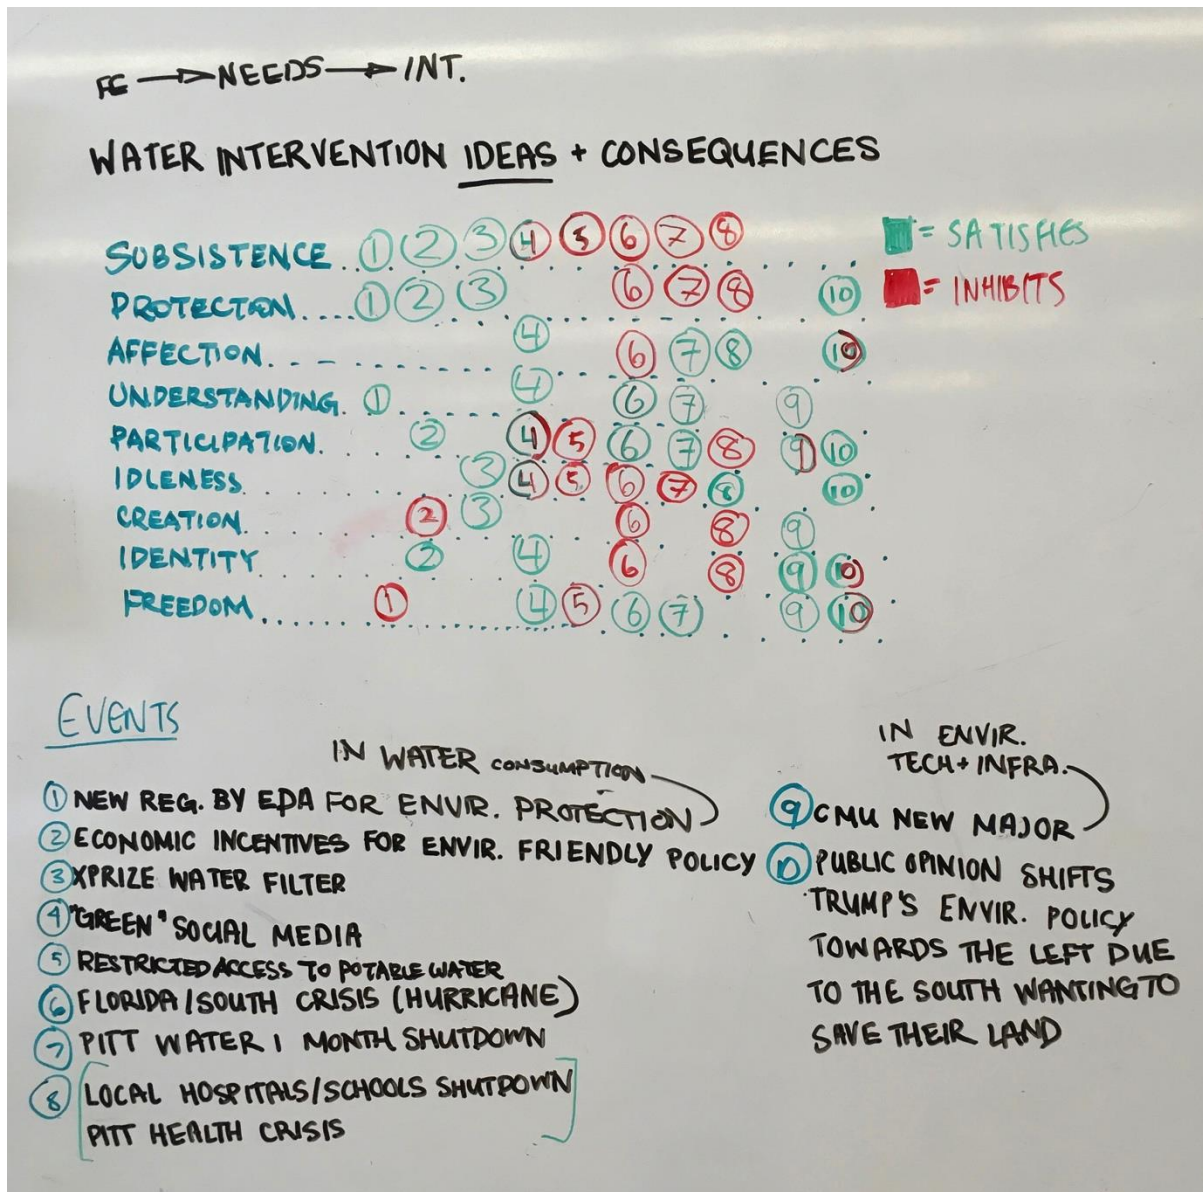 FC → NEEDS → INT.
WATER INTERVENTION IDEAS + CONSEQUENCES
SUBSISTENCE.. 1 2 3 4 5 6 7 8
■ = SATISFIES
PROTECTION.... 1 2 3 6 7 8 10
■ = INHIBITS
AFFECTION. 4 6 7 8 10
UNDERSTANDING. 1 4 6 7 9
PARTICIPATION. 2 4 5 6 7 8 9 10
IDLENESS 3 4 5 6 7 8 10
CREATION 2 3 6 8 9
IDENTITY 2 4 6 8 9 10
FREEDOM 1 4 5 6 7 9 10
EVENTS
IN WATER CONSUMPTION
① NEW REG. BY EPA FOR ENVIR. PROTECTION
② ECONOMIC INCENTIVES FOR ENVIR. FRIENDLY POLICY
③ XPRIZE WATER FILTER
④ "GREEN" SOCIAL MEDIA
⑤ RESTRICTED ACCESS TO POTABLE WATER
⑥ FLORIDA/SOUTH CRISIS (HURRICANE)
⑦ PITT WATER 1 MONTH SHUTDOWN
⑧ LOCAL HOSPITALS/SCHOOLS SHUTDOWN
PITT HEALTH CRISIS
IN ENVIR.
TECH + INFRA.
⑨ CMU NEW MAJOR
⑩ PUBLIC OPINION SHIFTS
TRUMP'S ENVIR. POLICY
TOWARDS THE LEFT DUE
TO THE SOUTH WANTING TO
SAVE THEIR LAND